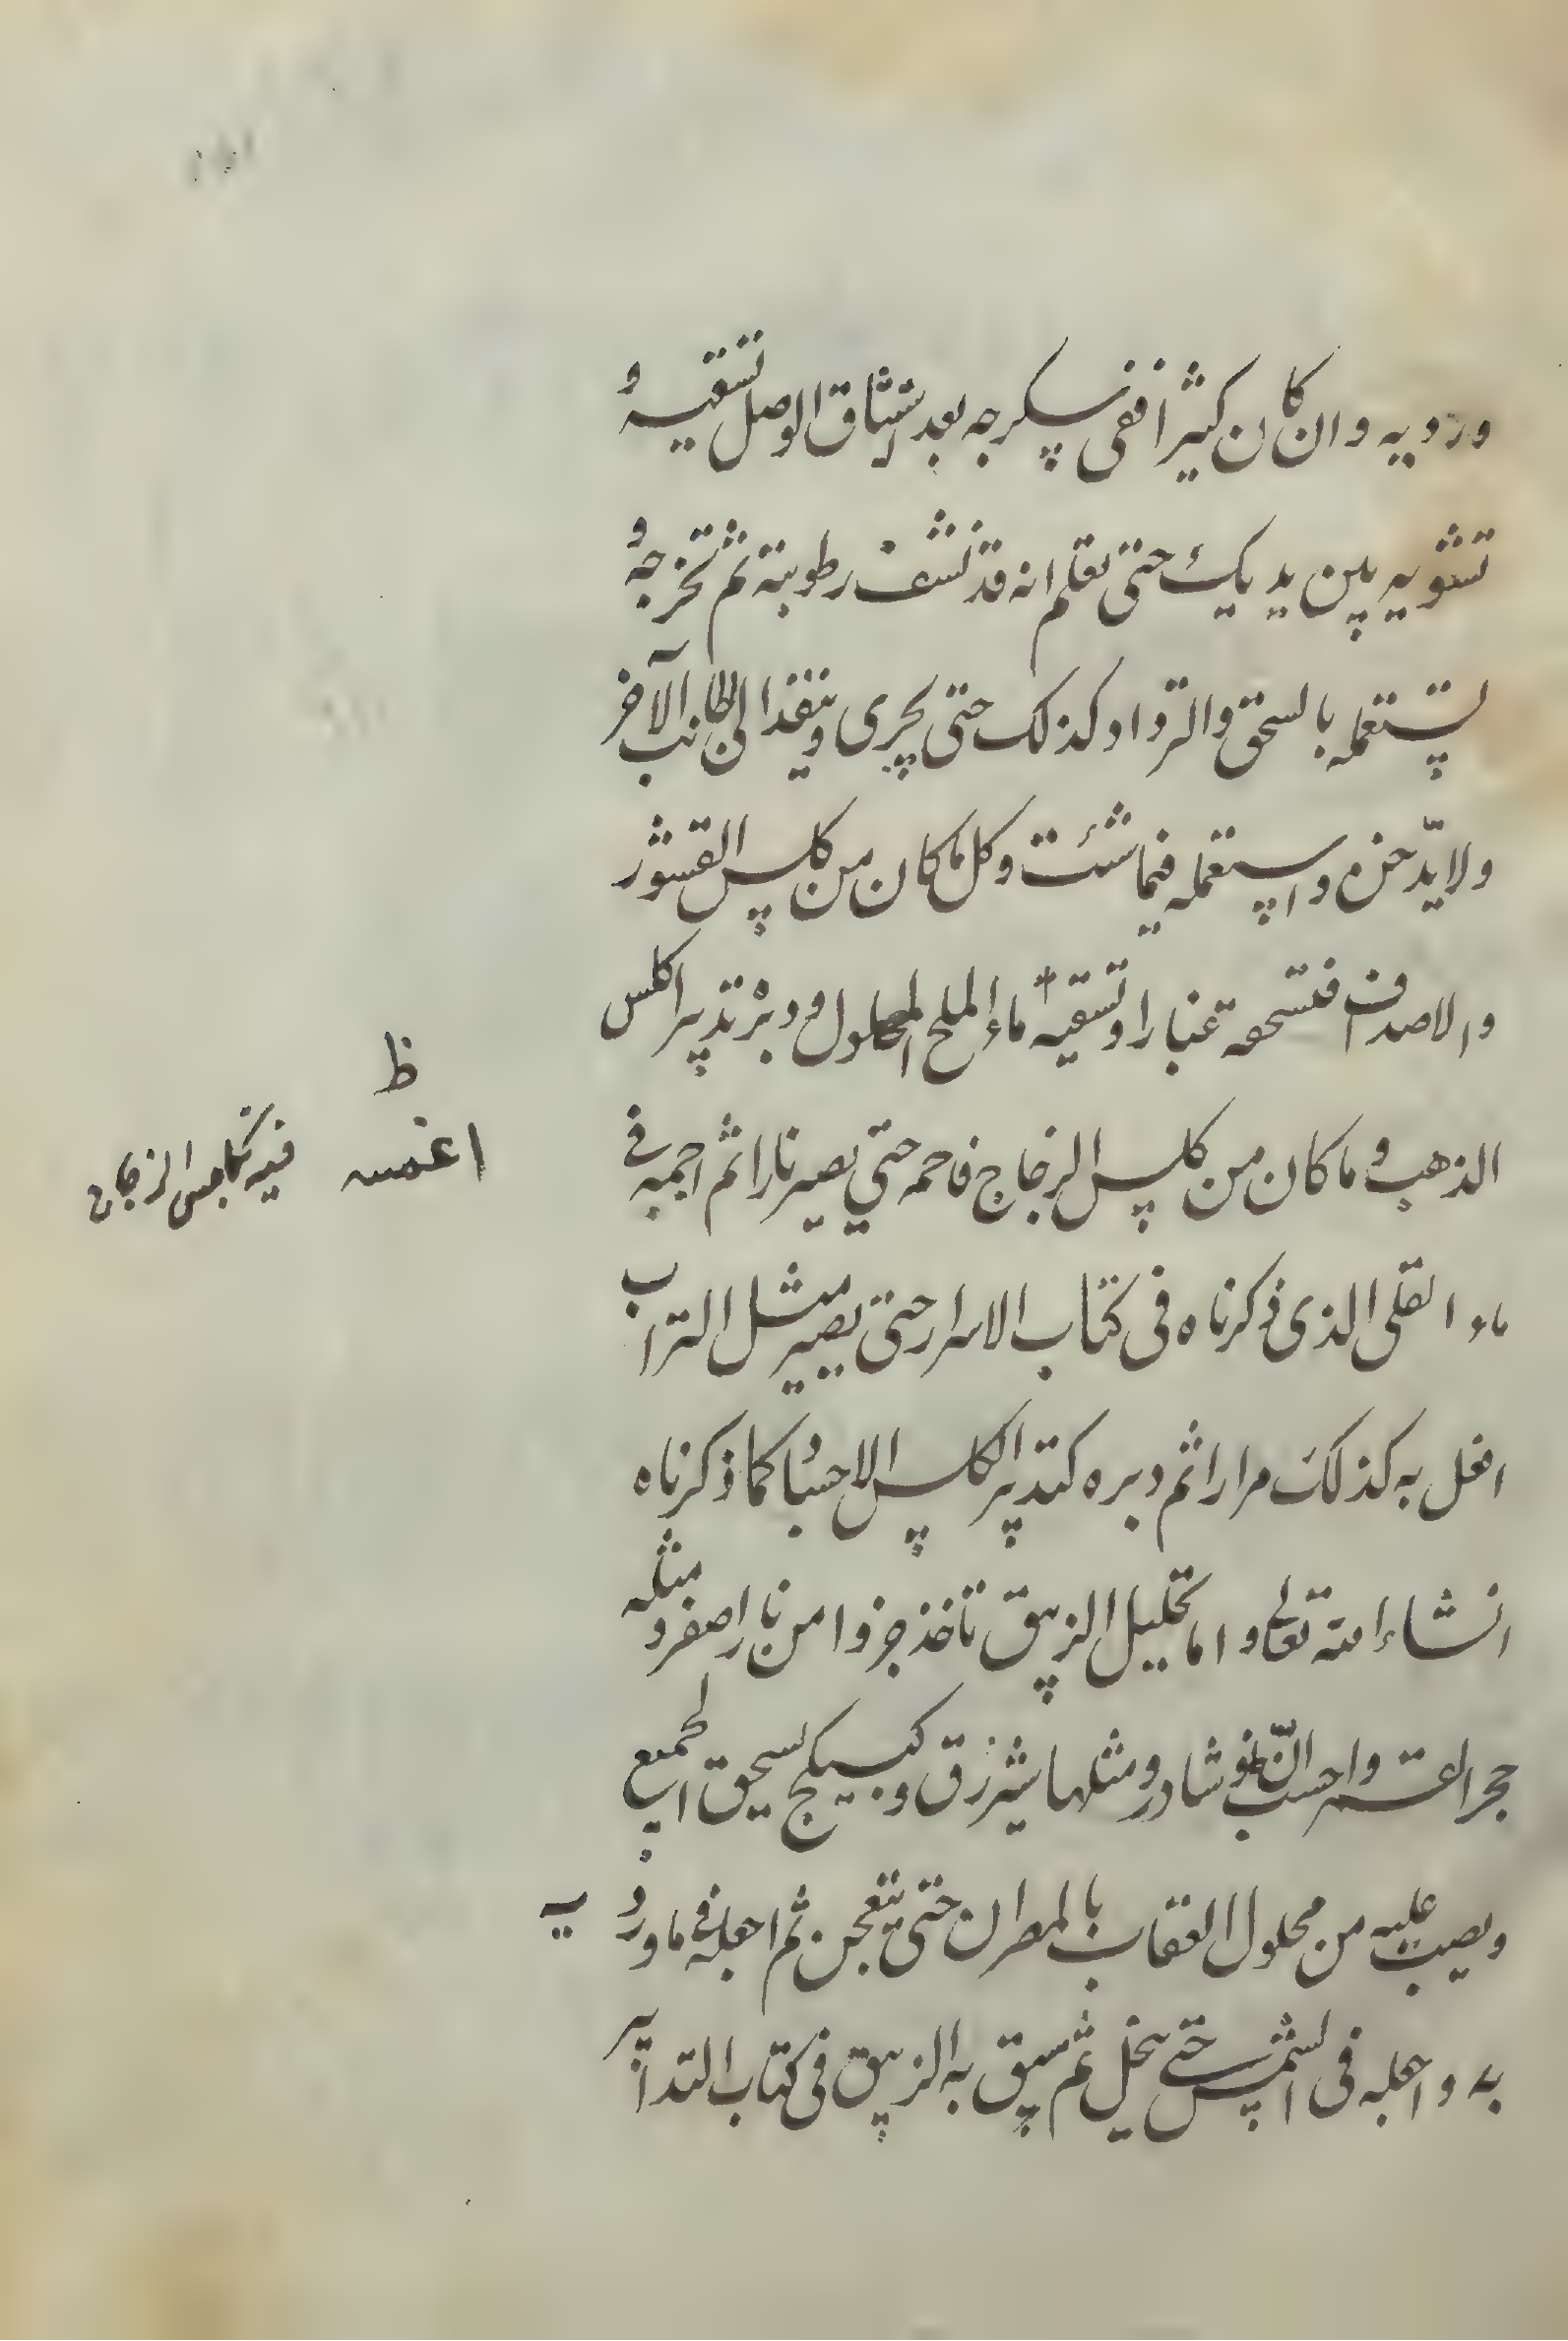 وردويه وان كان كثيرا ففى سكرجه بعد استيثاق الوصل تسقيه و
تشويه بين يديك حتى تعلم انه قد نشف رطوبته ثم تخرجه و
تستعمله بالسحق والترداد كذلك حتى يجرى وينفذ الى الجانب الآخر
ولا يدّخن واستعمله فيما شئت وكل ما كان من كلس القشور
والاصداف فتسحقه غبارا وتسقيه ماء الملح المحلول ودبره تدبير اكلس
الذهب وما كان من كلس الزجاج فاحمه حتى يصير نارا ثم اجمه فى
ماء القلى الذى ذكرناه فى كتاب الاسرار حتى يصير مثل التراب
افعل به كذلك مرارا ثم دبره كتدبير الكلس الاحساد كما ذكرناه
انشاء الله تعالى واما تحليل الزيبق تاخذ جزوا من نار اصفر ومثله
حجر واحسب النوشادر ومثلها شيرزق وكبيكج تسحق الجميع
ويصب عليه من محلول العقاب بالمطران حتى يتعجن ثم اجعله فى ماوردية
به واجعله فى الشمس حتى ينحل ثم سق به الزيبق فى كتاب التدابير
ظ
اغمسه
فيه تكليس الزجاج